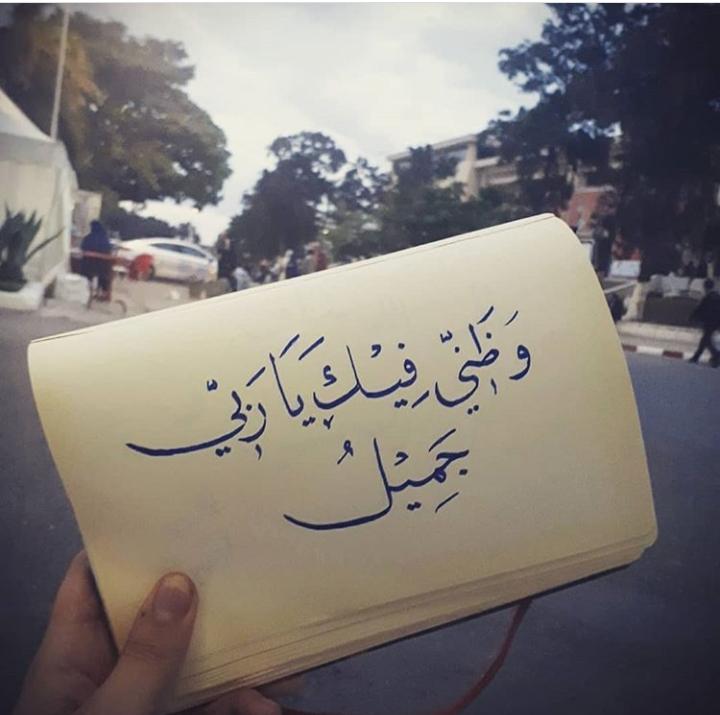 وَظَنِّي فِيْكَ يَا رَبِّي
جَمِيْلُ